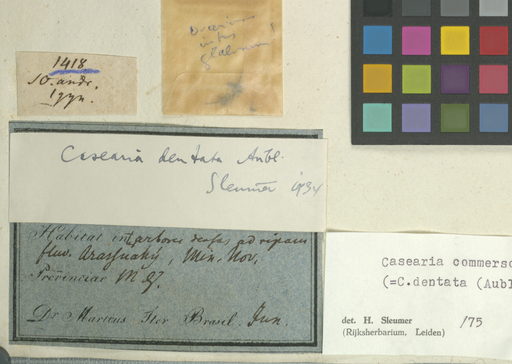 1418
10. andr.
1 gyn.
Ovarium
intus
glabrum!
Casearia dentata Aubl.
Sleumer 1934
Habitat int. arbores densas ad ripam
fluv. Arassuahy, Min. Nov.
Provinciar M. G.
Dr Martius Iter Brasil. Jun.
Casearia commerso
(=C.dentata (Aubl
det. H. Sleumer /75
(Rijksherbarium, Leiden)